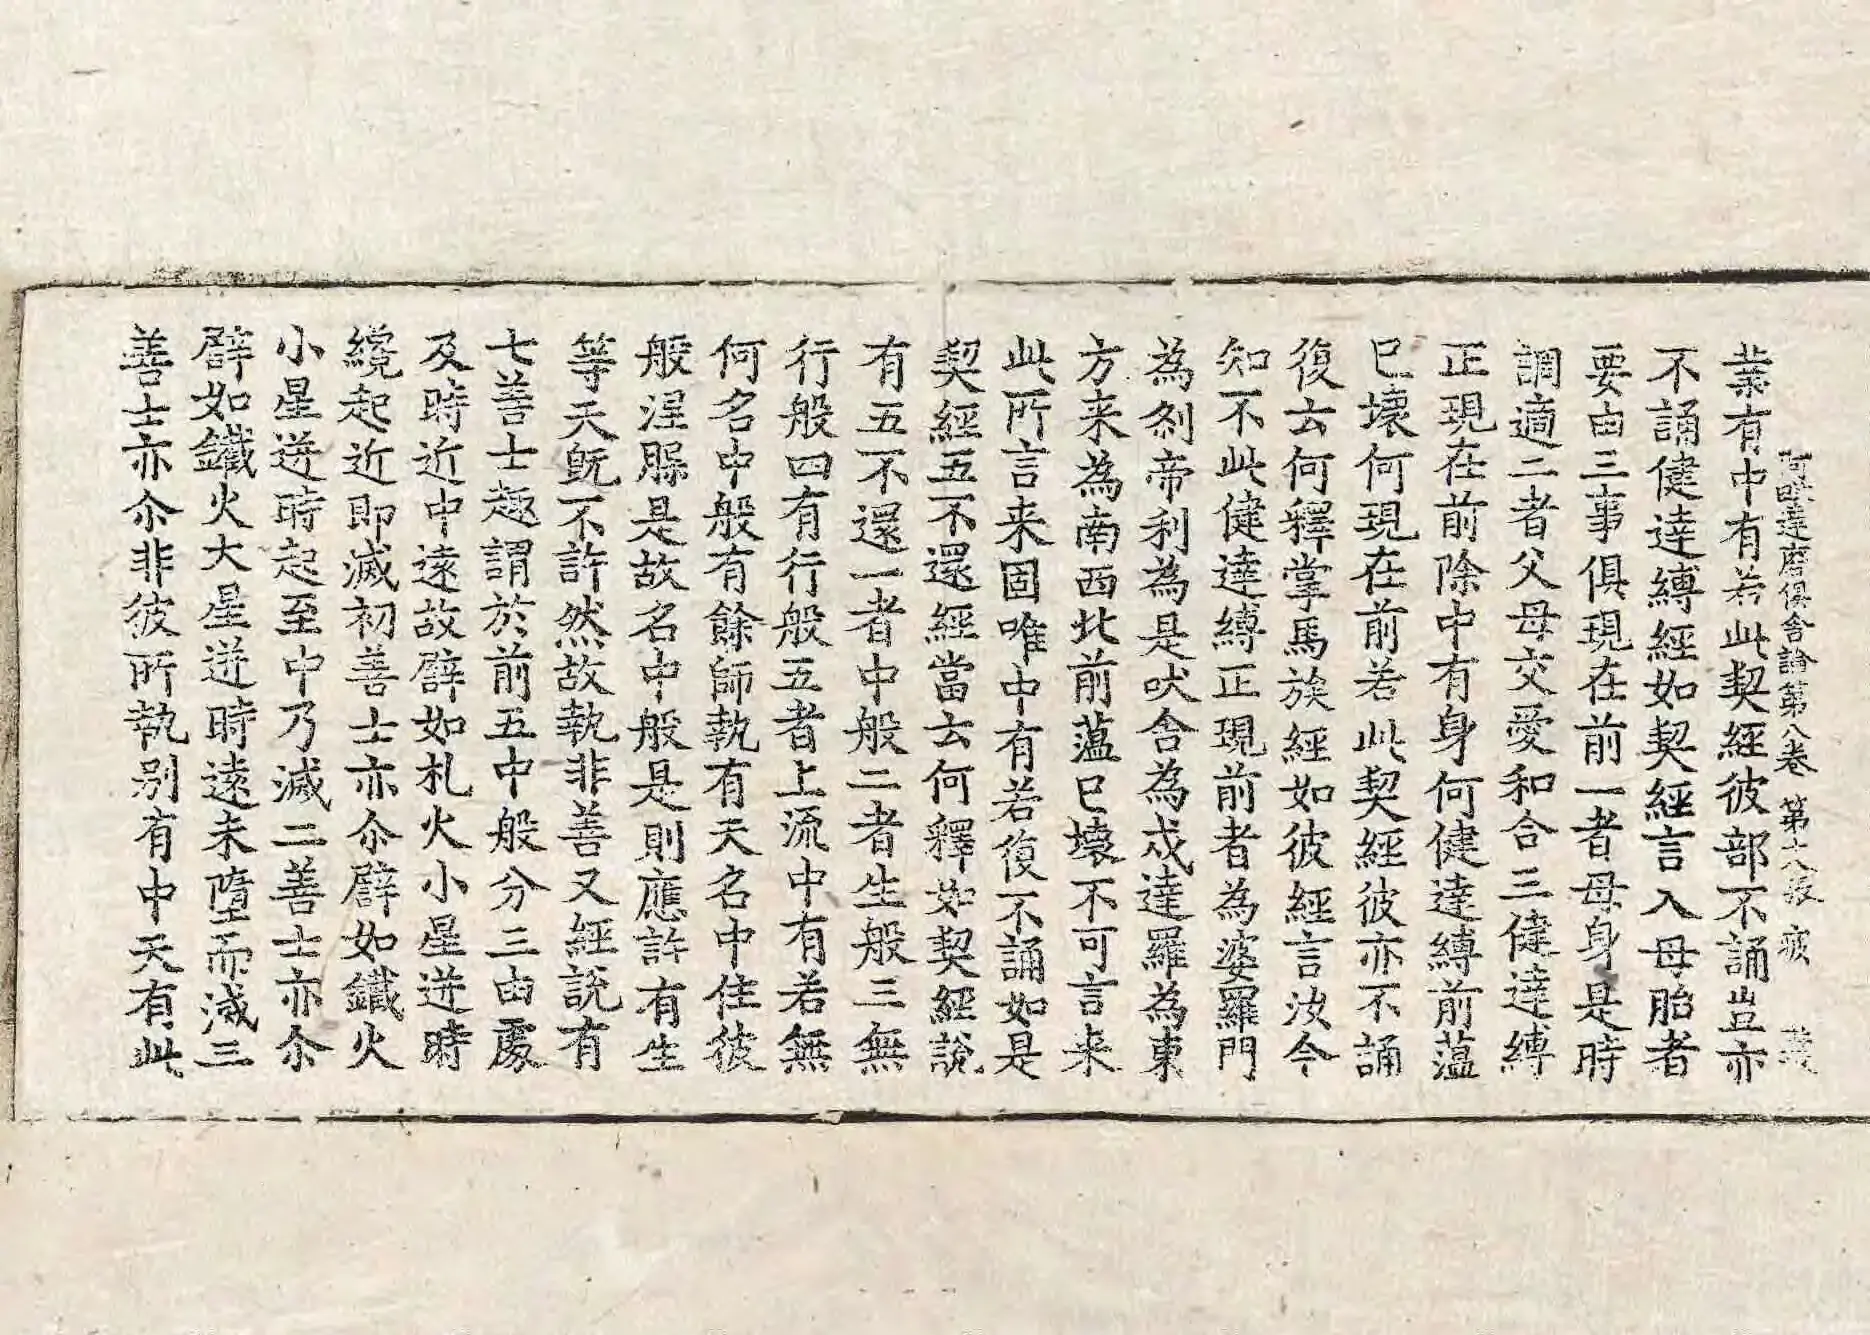 阿毗達磨俱舍論第八卷 第十八張 疲
業有中有若此契經彼部不誦豈亦
不誦健達縛經如契經言入母胎者
要由三事俱現在前一者母身是時
調適二者父母交愛和合三健達縛
正現在前除中有身何健達縛前蘊
已壞何現在前若此契經彼亦不誦
復云何釋掌馬族經如彼經言汝今
知不此健達縛正現前者為婆羅門
為剎帝利為是吠舍為戍達羅為東
方来為南西北前蘊已壞不可言来
此所言来固唯中有若復不誦如是
契經五不還經當云何釋如契經說
有五不還一者中般二者生般三無
行般四有行般五者上流中有若無
何名中般有餘師執有天名中住彼
般涅槃是故名中般是則應許有生
等天旣不許然故執非善又經說有
七善士趣謂於前五中般分三由處
及時近中遠故譬如札火小星迸時
纔起近即滅初善士亦尒譬如鐵火
小星迸時起至中乃滅二善士亦尒
譬如鐵火大星迸時遠未墮而滅三
善士亦尒非彼所執別有中天有此